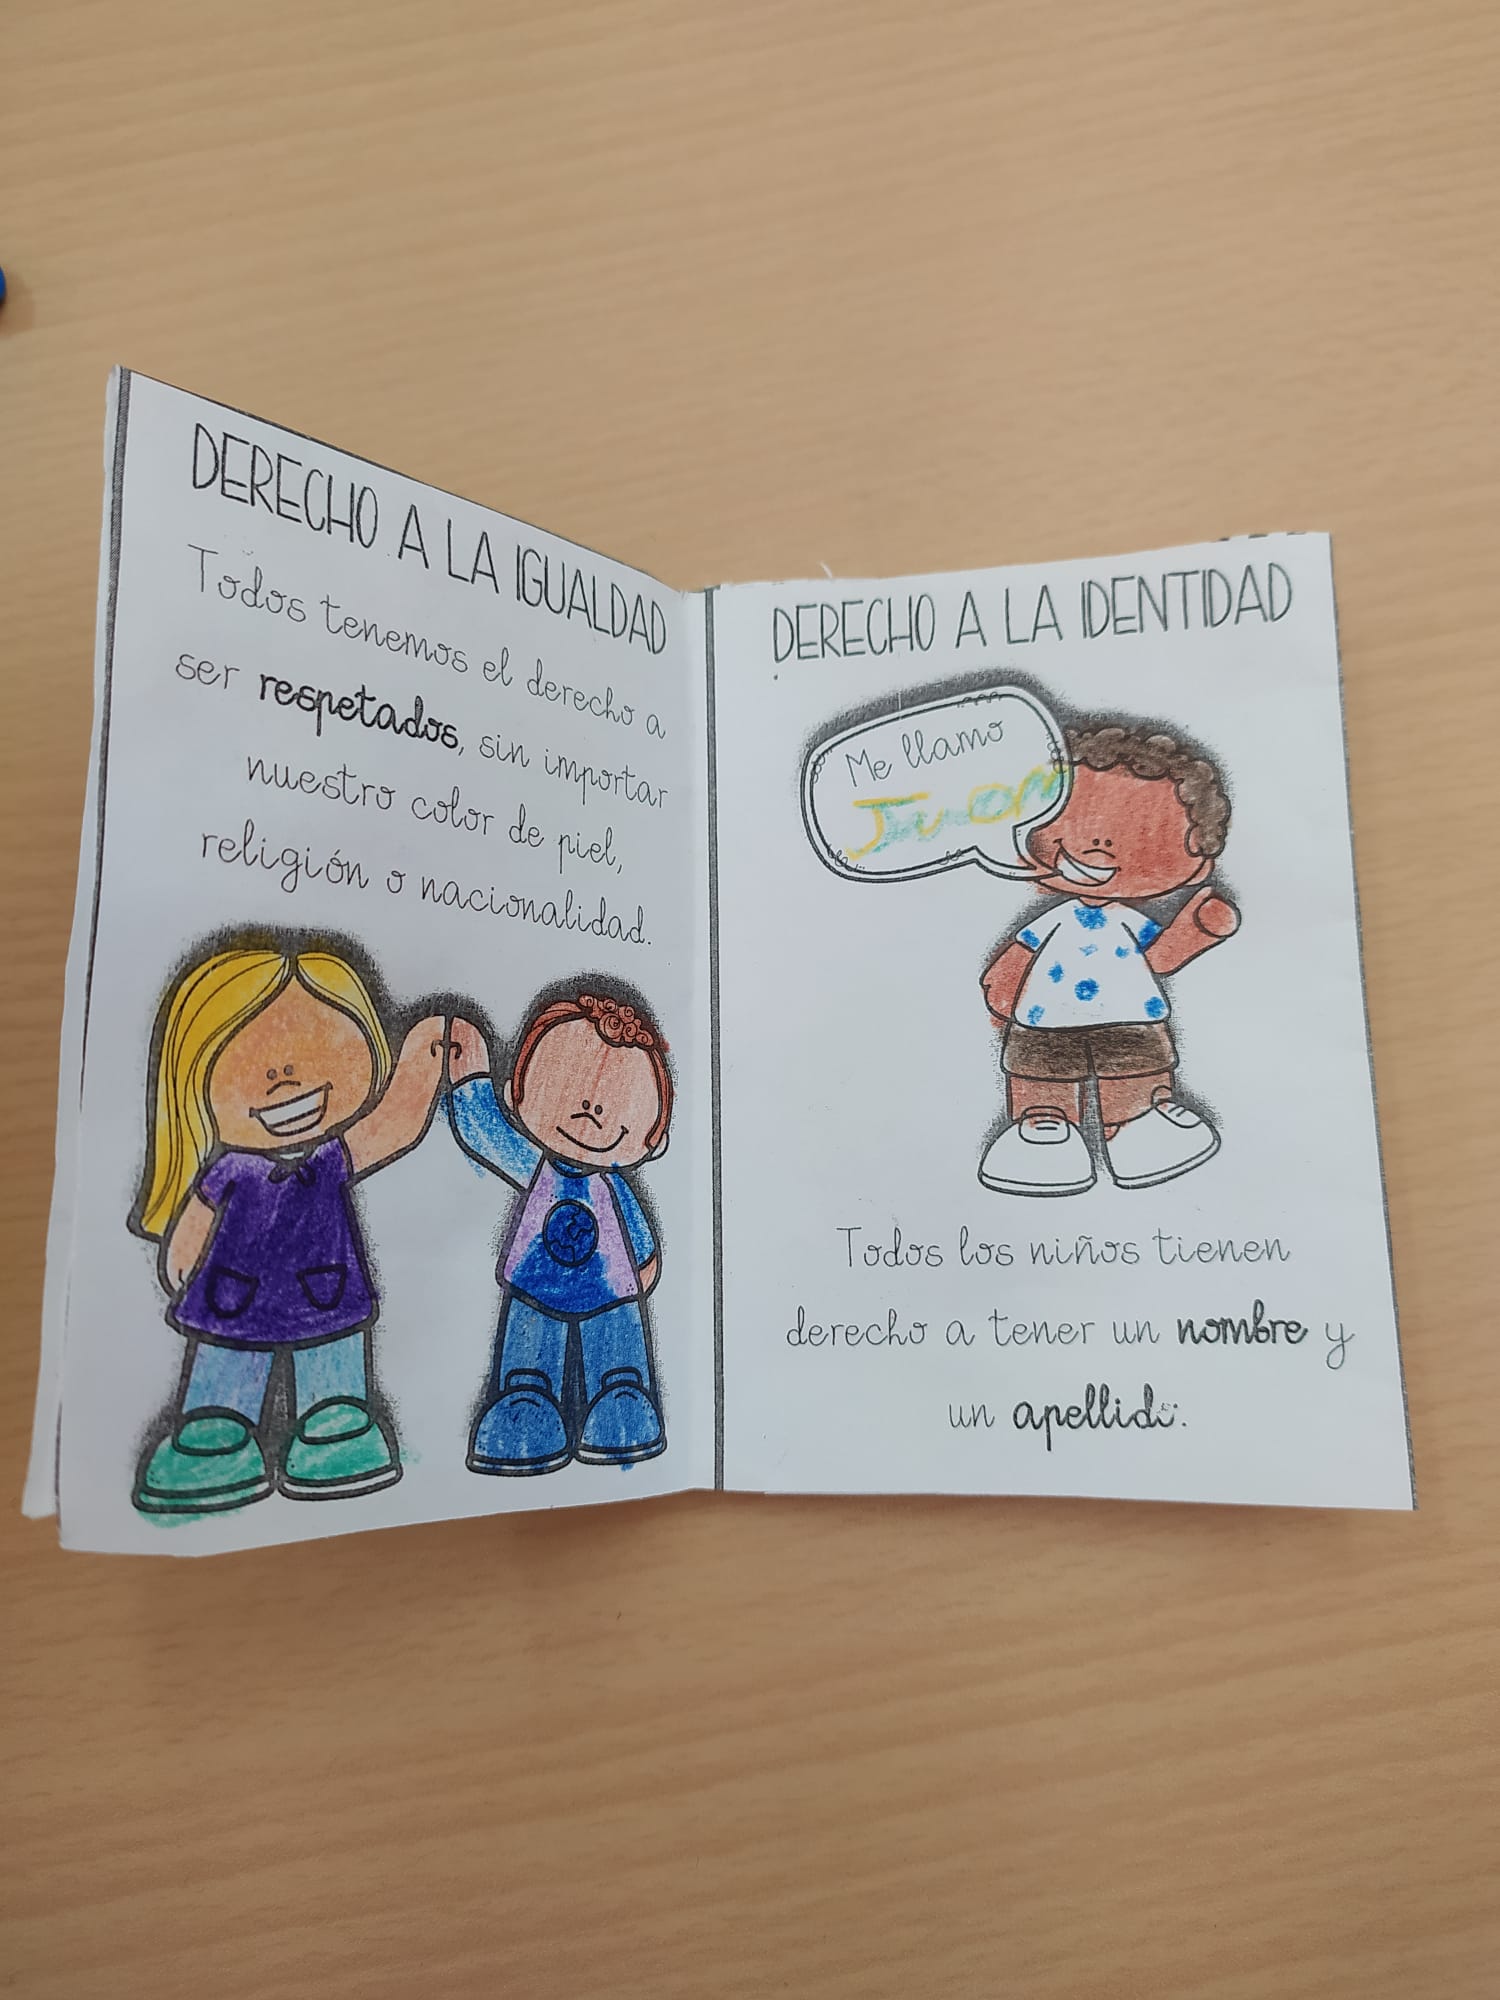 DERECHO A LA IGUALDAD
Todos tenemos el derecho a
ser respetados, sin importar
nuestro color de piel,
religión o nacionalidad.
DERECHO A LA IDENTIDAD
Me llamo
Juan
Todos los niños tienen
derecho a tener un nombre y
un apellido.